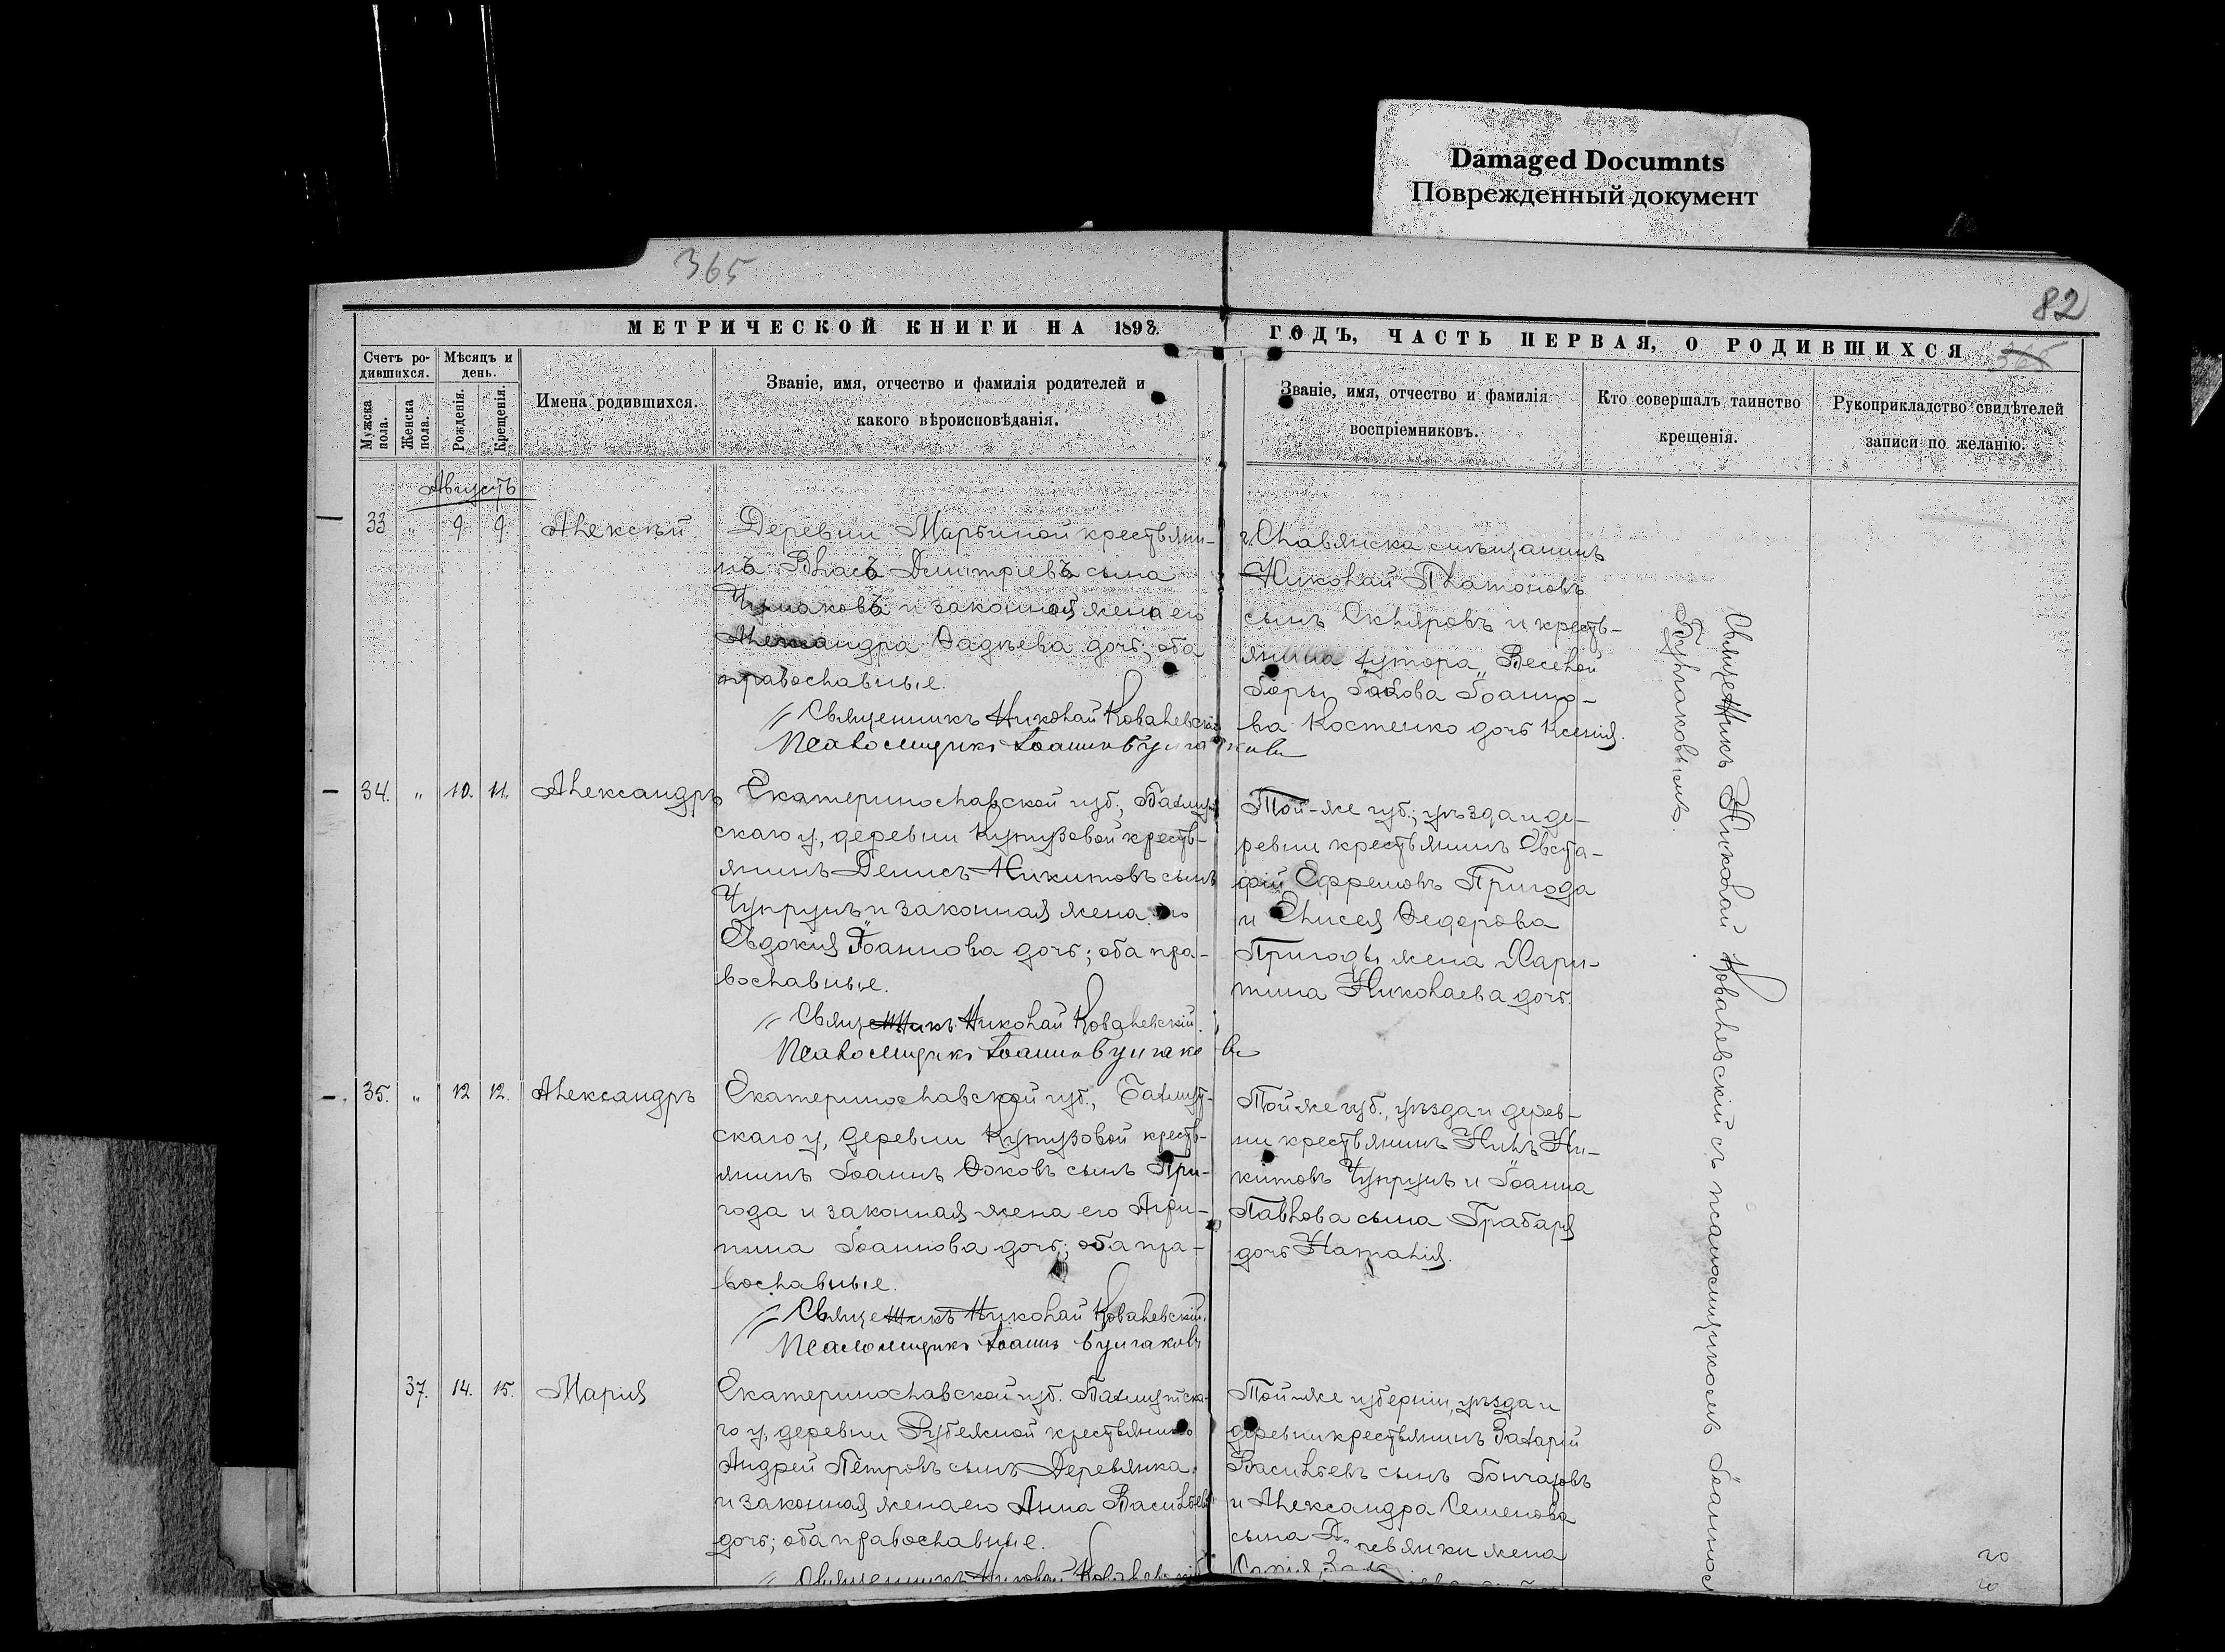 Damaged Documnts
Поврежденный документ
365
82
МЕТРИЧЕСКОЙ КНИГИ НА 1898.
ГОДЪ, ЧАСТЬ ПЕРВАЯ, О РОДИВШИХСЯ
365
Счетъ ро-
дившихся.
Мѣсяцъ и
день.
Мужска
пола.
Женска
пола.
Рожденія.
Крещенія.
Имена родившихся.
Званіе, имя, отчество и фамилія родителей и
какого вѣроисповѣданія.
Званіе, имя, отчество и фамилія
воспріемниковъ.
Кто совершалъ таинство
крещенія.
Рукоприкладство свидѣтелей
записи по желанію.
Августъ
33 " 9 9 Алексѣй
Деревни Марьиной крестьяни-
нъ Власъ Димитріевъ сына
Чумаковъ и законная жена его
Александра Фадѣева дочь; оба
православные.
Священникъ Николай Ковалевскій
Псаломщикъ Іоаннъ Булгаковъ
г. Славянска мѣщанинъ
Николай Платоновъ
сынъ Скляровъ и кресть-
янина хутора „Веселой
Горы" Іакова Іоанно-
ва Костенко дочь Ксенія.
34. " 10. 11. Александръ
Екатеринославской губ., Бахмут-
скаго у., деревни Кутузовой кресть-
янинъ Денисъ Никитовъ сынъ
Чупрунъ и законная жена его
Евдокія Іоаннова дочь; оба пра-
вославные.
Священникъ Николай Ковалевскій.
Псаломщикъ Іоаннъ Булгаковъ
Той-же губ., уѣзда и де-
ревни крестьянинъ Евста-
фій Ефремовъ Пригода
и Елисея Федорова
Пригоды жена Хари-
тина Николаева дочь.
35. " 12 12. Александръ
Екатеринославской губ., Бахмут-
скаго у., деревни Кутузовой кресть-
янинъ Іоаннъ Фоковъ сынъ При-
года и законная жена его Агри-
пина Іоаннова дочь; оба пра-
вославные.
Священникъ Николай Ковалевскій.
Псаломщикъ Іоаннъ Булгаковъ
Той же губ., уѣзда и дерев-
ни крестьянинъ Нилъ Ни-
китовъ Чупрунъ и Іоанна
Павлова сына Грабаря
дочь Наталія.
37. 14. 15. Марія
Екатеринославской губ. Бахмутска-
го у, деревни Рубежной крестьянинъ
Андрей Петровъ сынъ Деревянка
и законная жена его Анна Васильева
дочь; оба православные.
Священникъ Николай Ковалевскій
Той-же губерніи, уѣзда и
деревни крестьянинъ Захарій
Васильевъ сынъ Гончаровъ
и Александра Семенова
сына Деревянки жена
Священникъ Николай Ковалевскій съ псаломщикомъ Іоанномъ
Булгаковымъ.
го
го